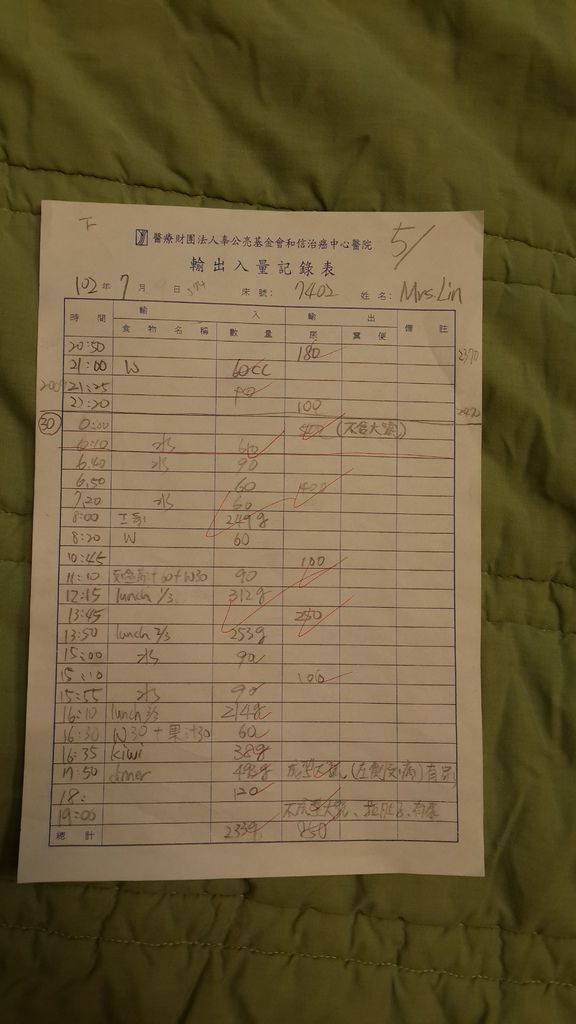 5/
醫療財團法人辜公亮基金會和信治癌中心醫院
輸出入量記錄表
102 年 7 月 日 床號: 7402 姓名: Mrs. Lin
時間 輸入 輸出 備註
食物名稱 數量 尿 糞便
20:50 180 2370
21:00 W 60cc
21:25
22:20 100
30 0:00 (不含大號)
6:10 水 60
6.40 水 90
6.50 60 400
7.20 水 60
8:00 249g
8:20 W 60
10:45 100
11:10 60+W30 90
12:15 lunch 1/3 312g
13:45 250
13:50 lunch 2/3 253g
15:00 水 90
15:10 100
15:55 水 90
16:10 lunch 3/3 214g
16:30 W30+果汁30 60
16:35 kiwi 38g
17:50 dinner 493g
18: 120
19:00 不成型大號、拉肚子
總計 2339 850